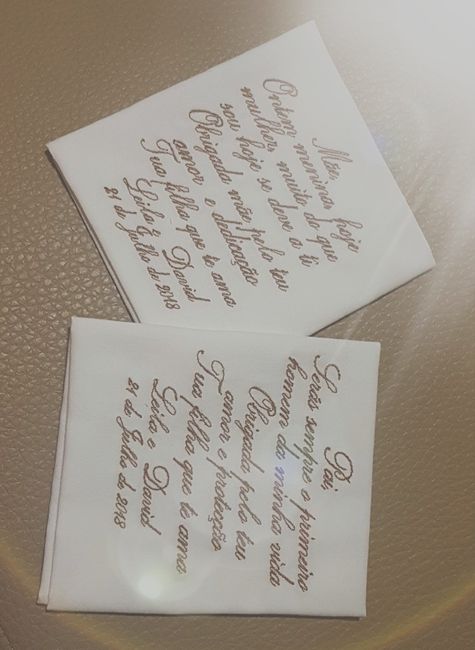 Mãe,
Ontem menina, hoje
mulher, muito do que
sou hoje se deve a ti
Obrigada mãe pelo teu
amor e dedicação
Tua filha que te ama
Leila & David
21 de Julho de 2018
Pai,
Serás sempre o primeiro
homem da minha vida
Obrigada pelo teu
amor e proteção
Tua filha que te ama
Leila e David
21 de Julho de 2018